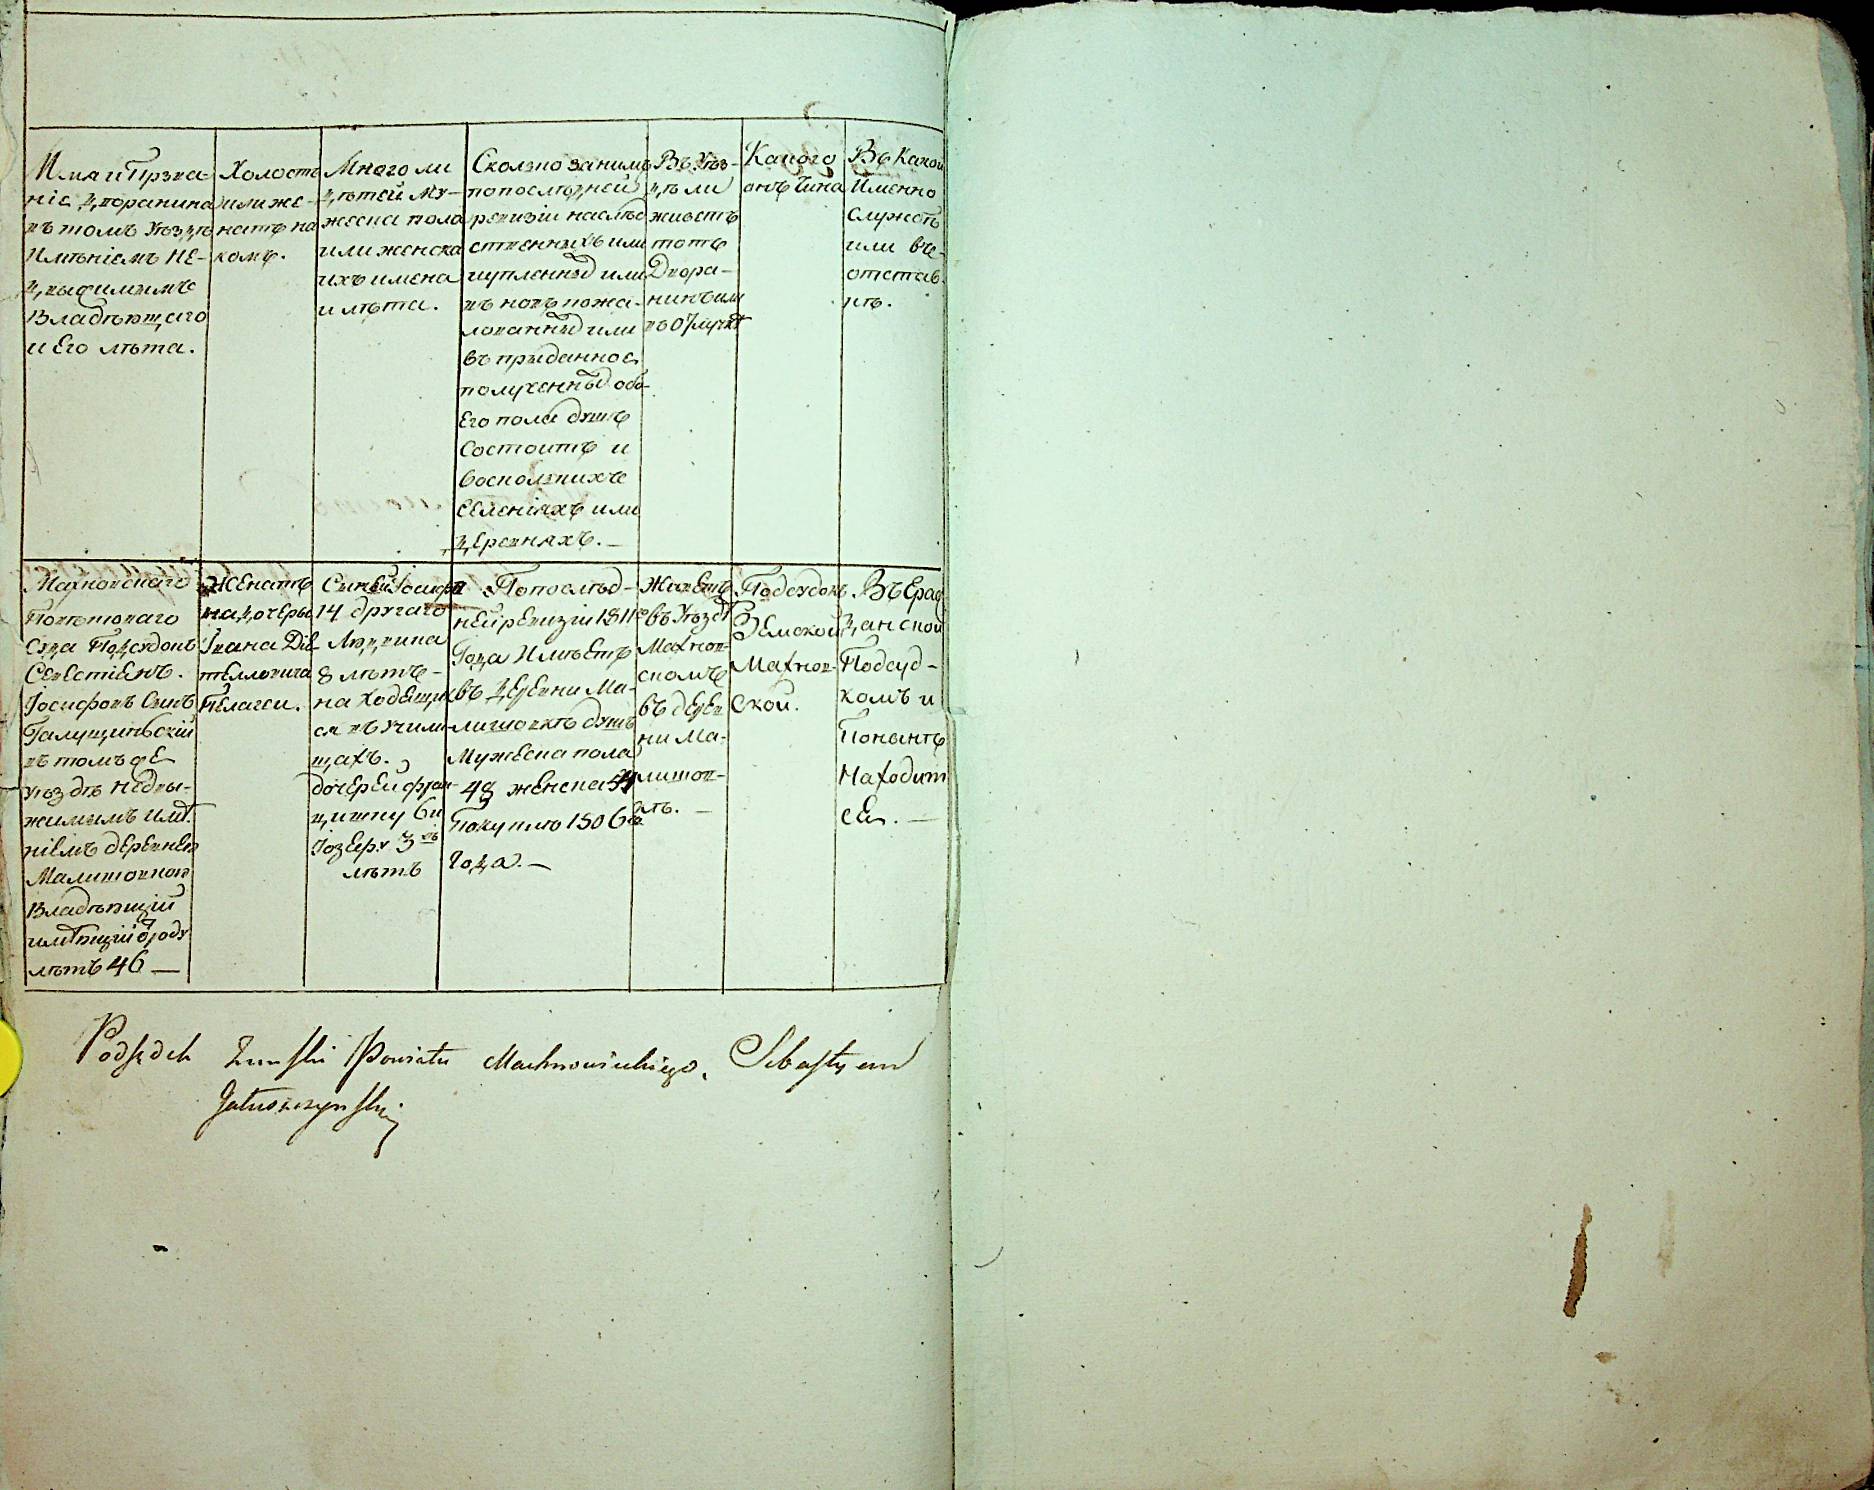 Имя и Прзва-
ніе Дворанина
въ томъ Уѣздѣ
Имѣніемъ не-
двыжимымъ
Владѣющаго
и Его лѣта.
Холостъ
или же-
натъ на
комъ.
Много ли
дѣтей му-
жеска пола
или женска
ихъ имена
и лѣта.
Сколко занимъ
попослѣдней
ревизіи наслѣд
ственныхъ или
купленныхъ или
въ новъ пожа-
лованныхъ или
въ прыданное
полученныхъ обо-
Его пола душъ
Состоитъ и
восколкихъ
селеніяхъ или
деревнахъ. —
Въ Уѣз-
дѣ ли
живетъ
тотъ
Двора-
нинъ или
въ Отлучкѣ
Какого
онъ Чина
Въ Какой
Именно
службѣ
или въ
отстав-
кѣ.
Махновскаго
Повѣтоваго
Суда Подсудокъ
Севестіенъ
Іосифовъ Синъ
Галущинскій
въ томъ же
уѣздѣ недвы-
жимымъ имѣ-
ніемъ деревнею
Малишовкой
Владѣющій
имѣющій отроду
лѣтъ 46 —
Женатъ
на дочеры
Івана
Пелагеи.
Сыней Іосифа
14 другаго
Людвика
8 лѣтъ-
на Ходящих
ся въ учили-
щахъ.
дочерей фран-
цишку 6 и
Іозефу 3хъ
лѣтъ
Попослѣд-
ней ревизіи 1811го
Года Имѣетъ
въ деревни Ма-
лишовкѣ душъ
Мужеска пола
48 женска 54
Покупкѣ 1806го
Года. —
Живетъ
въ Уѣздѣ
Махнов-
скомъ
въ дерев
ни Ма-
лишов-
кѣ. —
Подсудокъ
Земской
Махнов-
ской.
Въ Граж
данской
Подсуд-
комъ и
Понынѣ
Находит
се. —
Podsędek Ziemski Powiatu Machnowieckiego, Sebastyan
Gałuszczynski